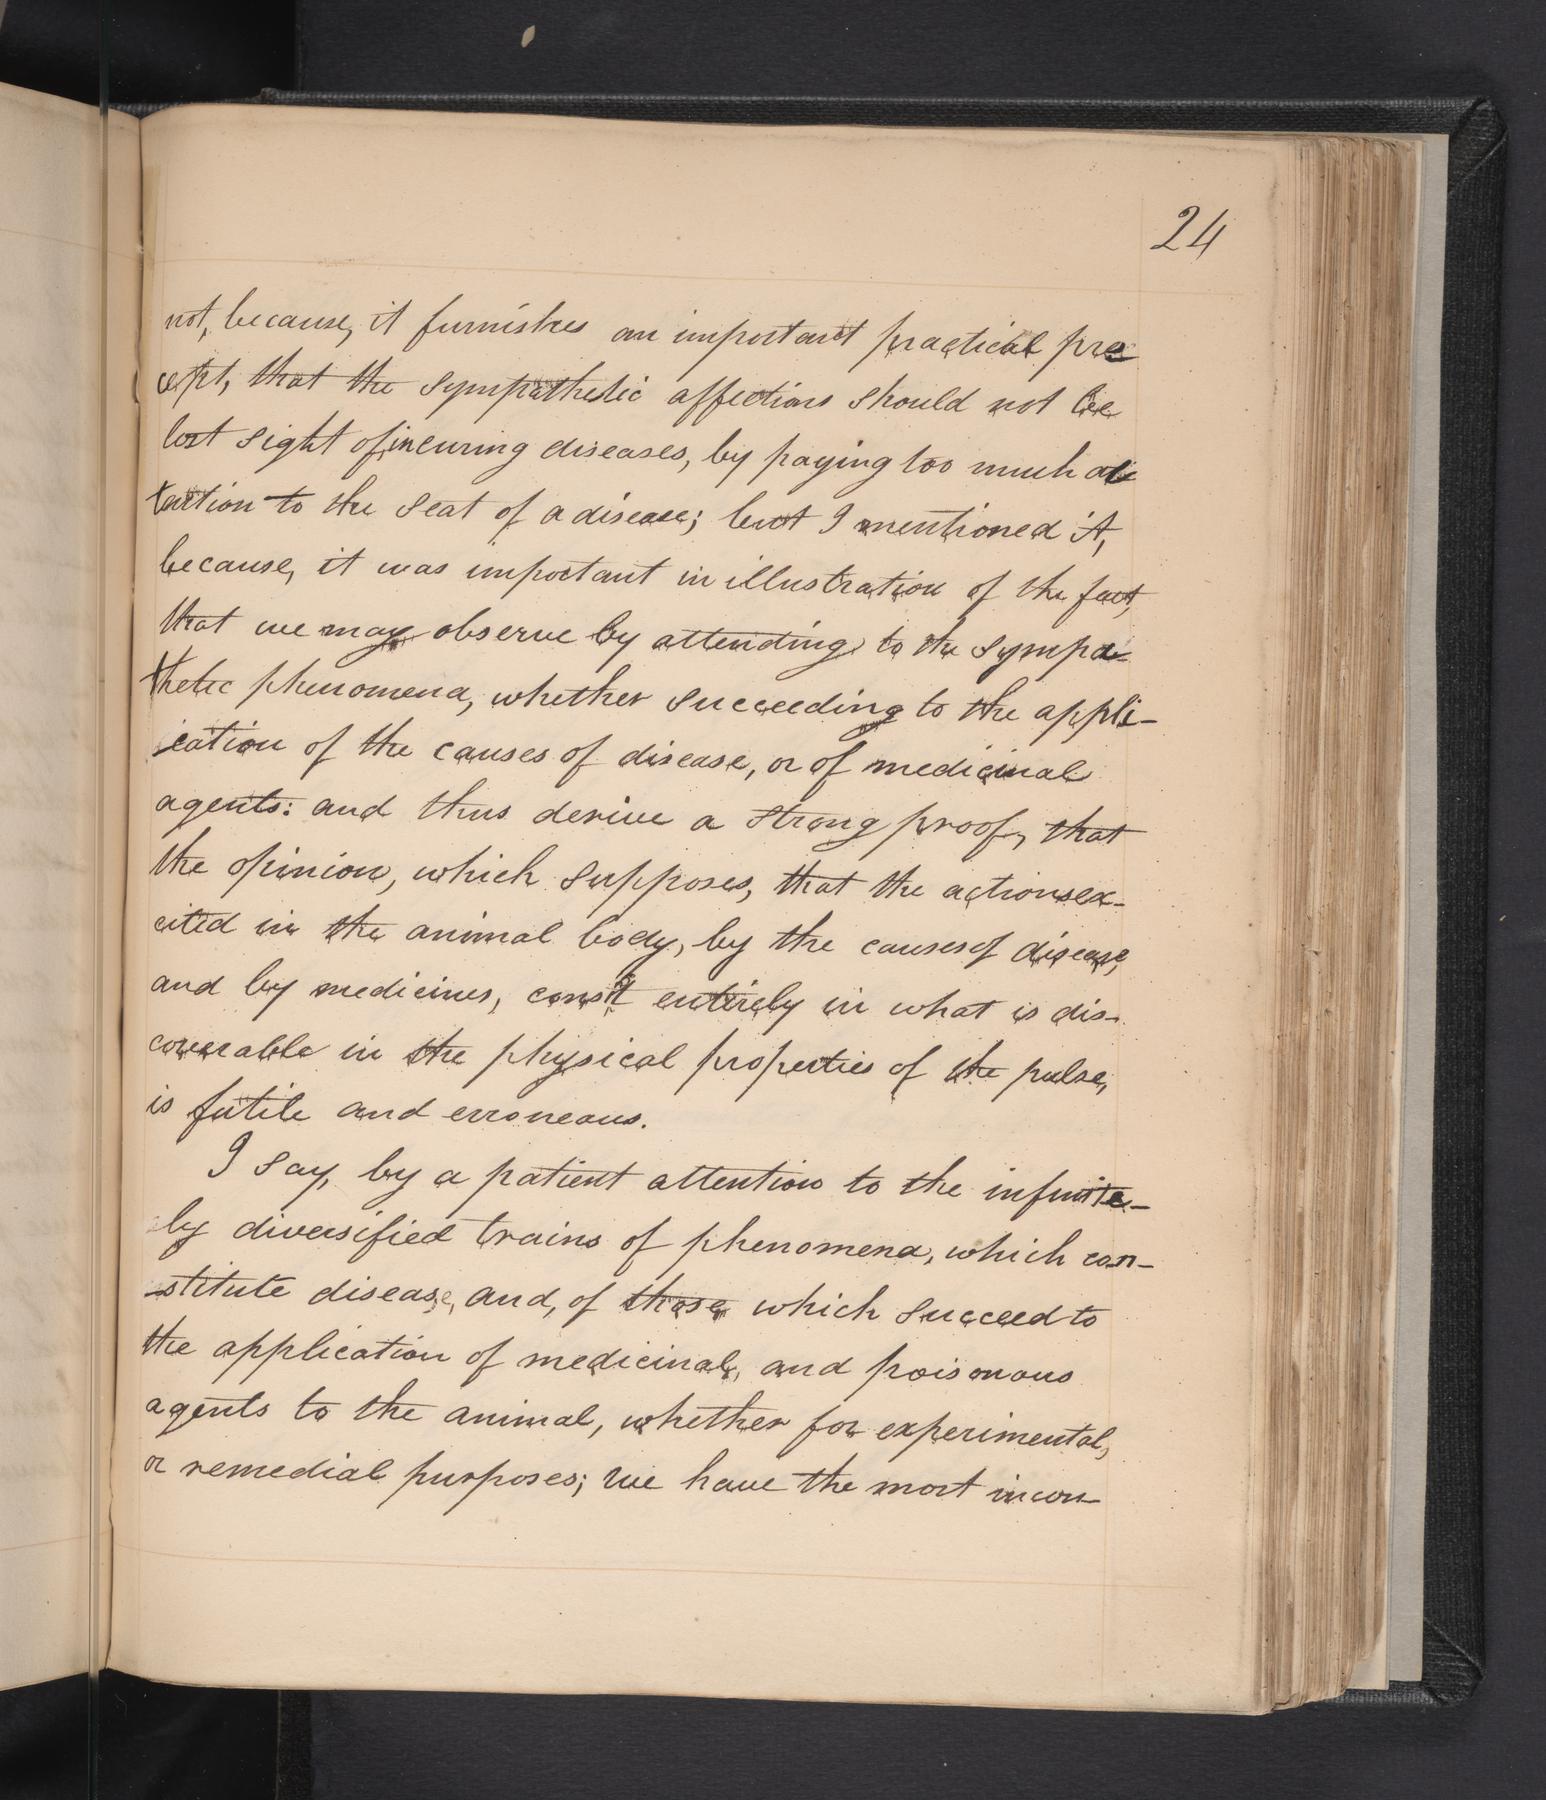 24
not, because, it furnishes an important practical pre
cept, that the sympathetic affections should not be
lost sight of, in curing diseases, by paying too much at
tention to the seat of a disease; but I mentioned it,
because, it was important in illustration of the fact,
that we may observe by attending to the sympa-
thetic phenomena, whether succeeding to the appli-
cation of the causes of disease, or of medicinal
agents: and thus derive a strong proof, that
the opinion, which supposes, that the actions ex-
cited in the animal body, by the causes of disease,
and by medicines, consit entirely in what is dis-
coverable in the physical properties of the pulse,
is futile and erroneous.
I say, by a patient attention to the infinite-
ly diversified trains of phenomena, which con-
-stitute disease, and, of those which succeed to
the application of medicinal, and poisonous
agents to the animal, whether for experimental,
or remedial purposes; we have the most incon-